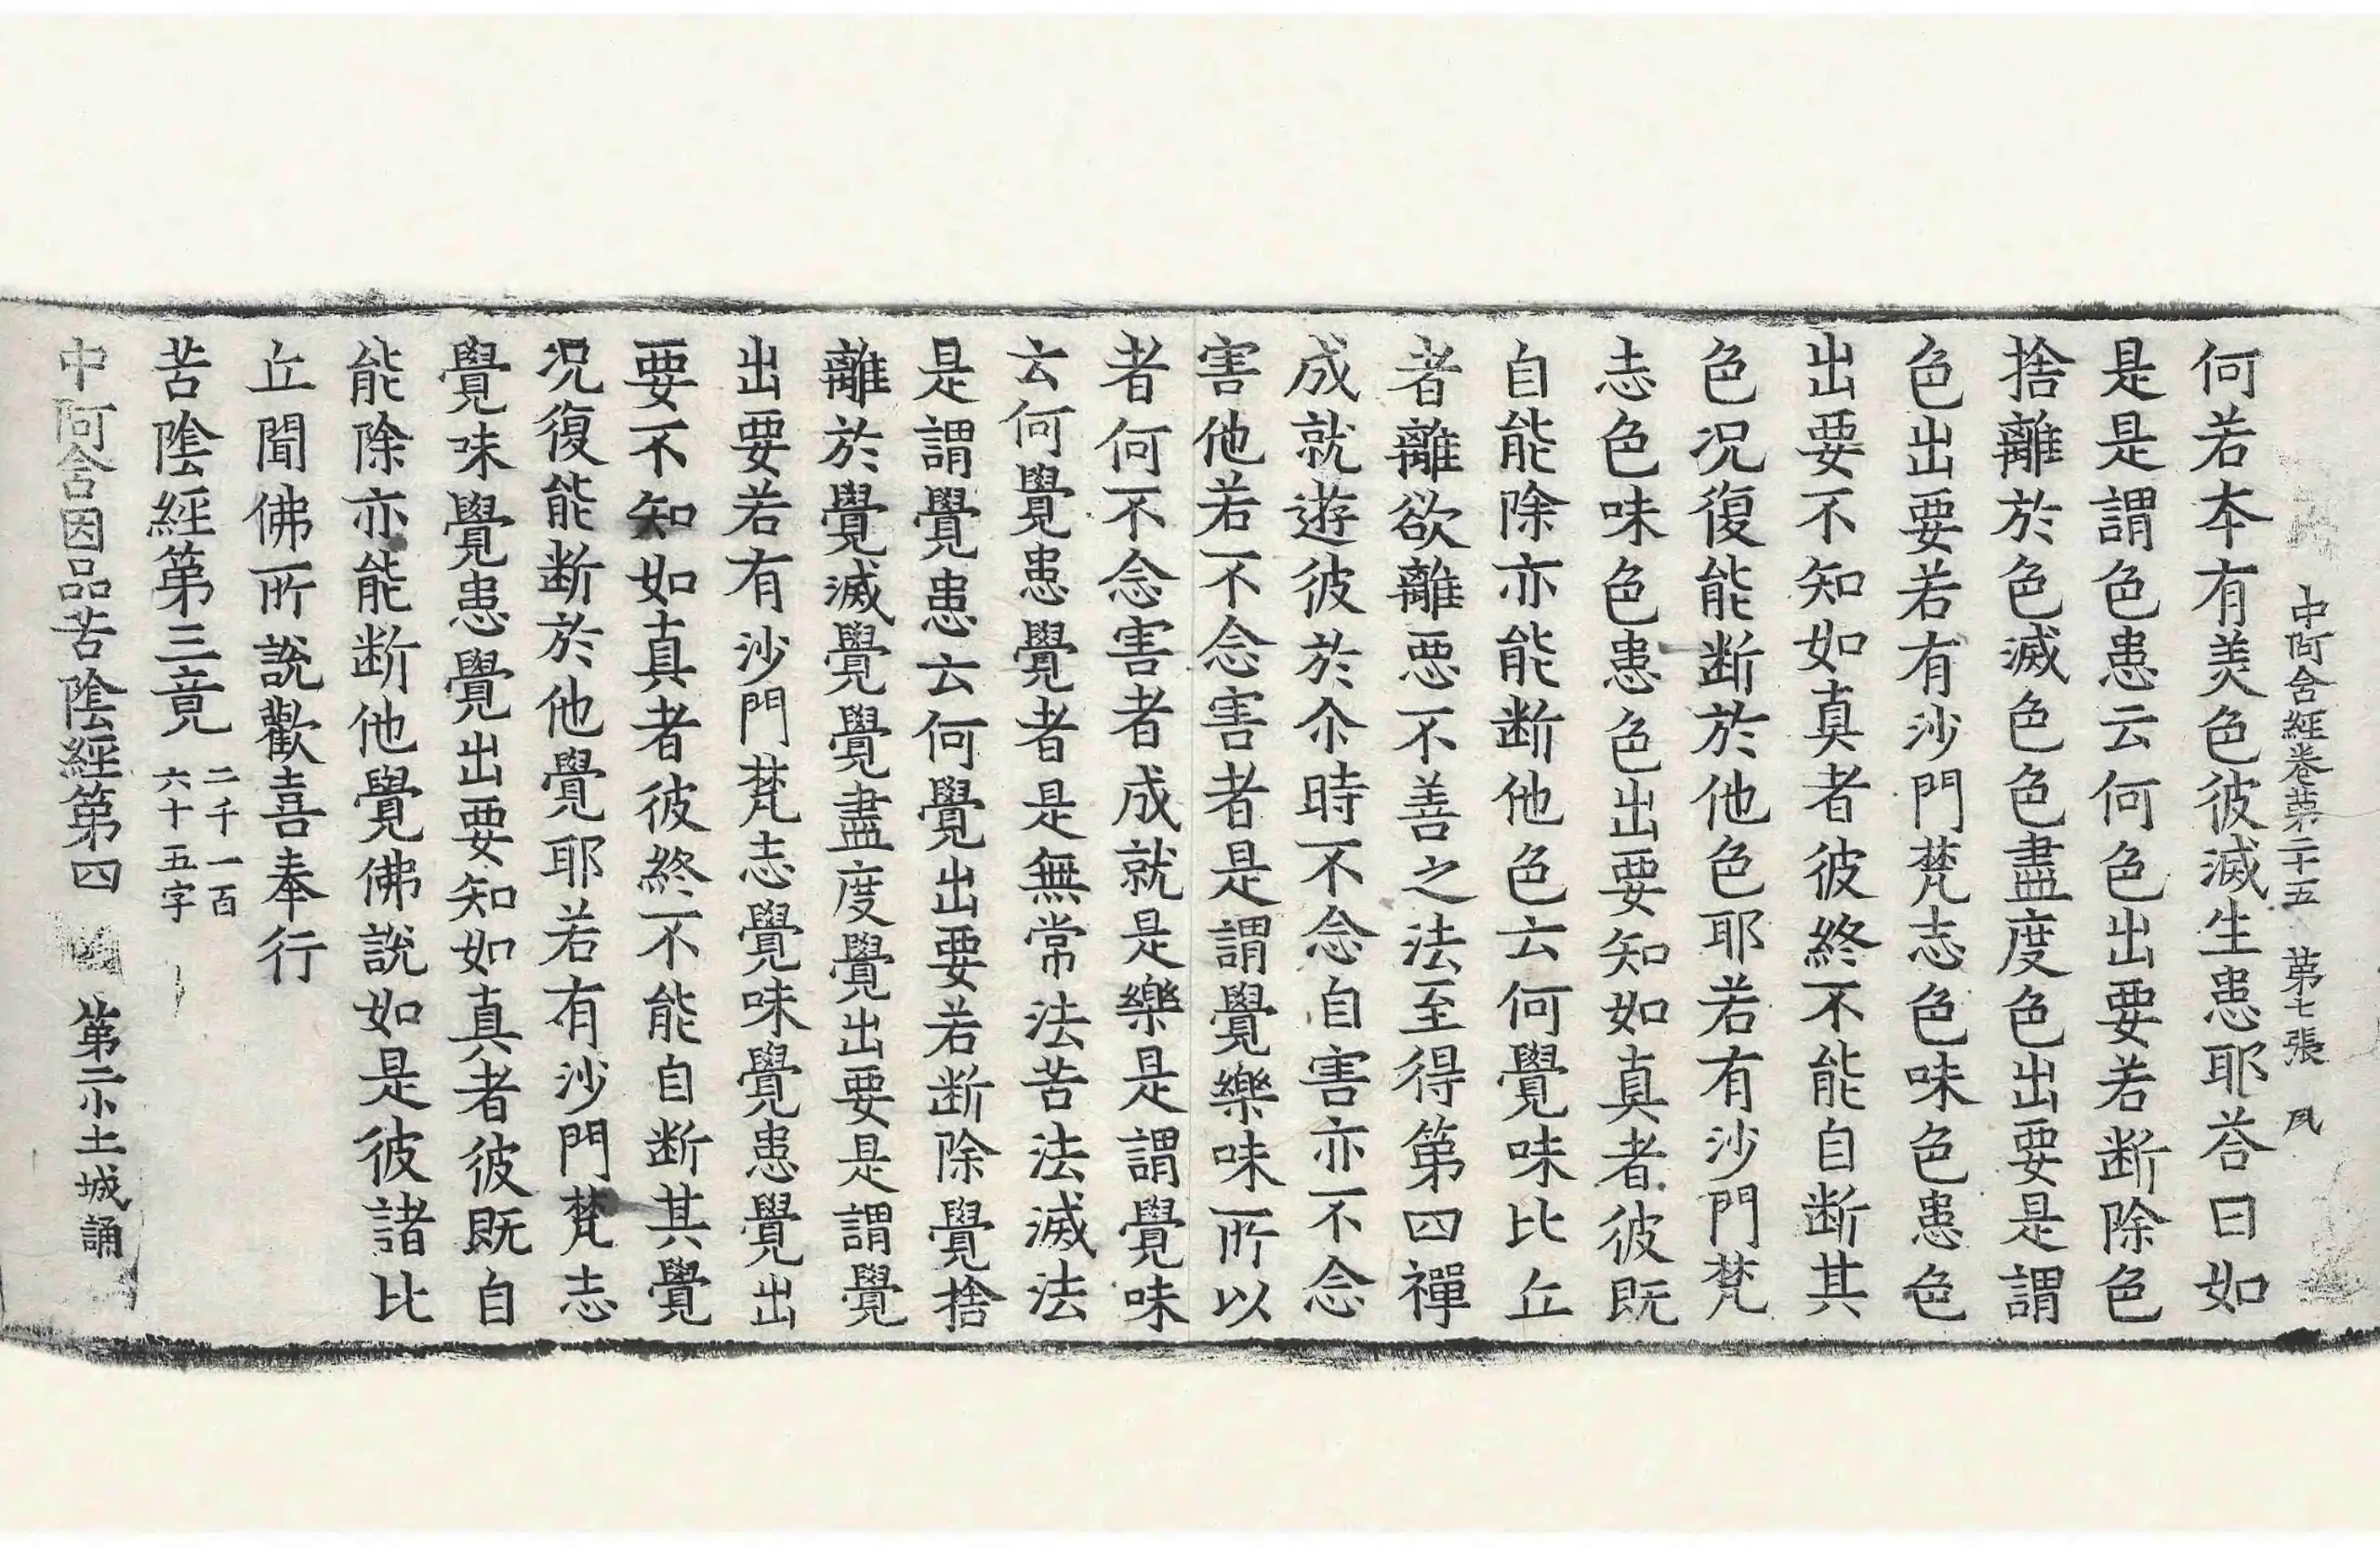 中阿含經卷第二十五 第七張 夙
何若本有美色彼滅生患耶荅曰如
是是謂色患云何色出要若断除色
捨離於色滅色色盡度色出要是謂
色出要若有沙門梵志色味色患色
出要不知如真者彼終不能自断其
色况復能断於他色耶若有沙門梵
志色味色患色出要知如真者彼既
自能除亦能断他色云何覺味比丘
者離欲離惡不善之法至得第四禪
成就遊彼於尒時不念自害亦不念
害他若不念害者是謂覺樂味所以
者何不念害者成就是樂是謂覺味
云何覺患覺者是無常法苦法滅法
是謂覺患云何覺出要若断除覺捨
離於覺滅覺覺盡度覺出要是謂覺
出要若有沙門梵志覺味覺患覺出
要不知如真者彼終不能自断其覺
况復能断於他覺耶若有沙門梵志
覺味覺患覺出要知如真者彼既自
能除亦能断他覺佛説如是彼諸比
丘聞佛所說歡喜奉行
苦陰經第三竟 二千一百
六十五字
中阿含因品苦陰經第四 第二小土城誦